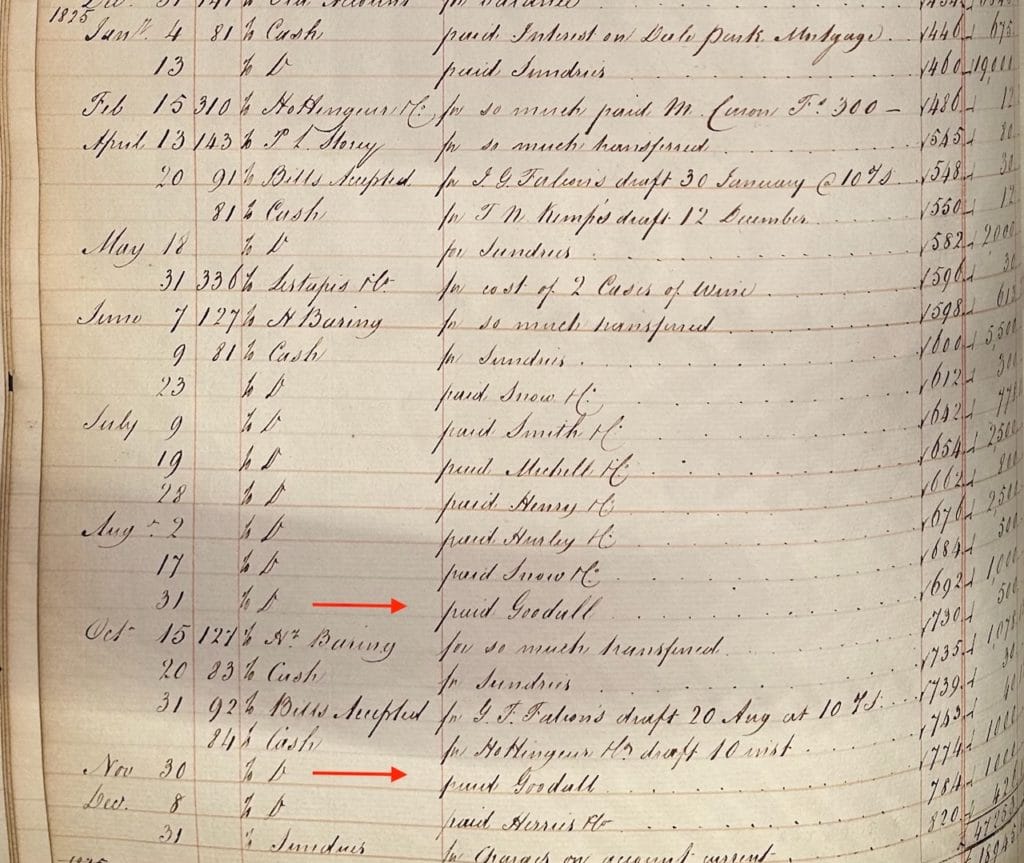 Dec. 31 141 To Old Account for balance
1825
Jany. 4 81 To Cash paid Interest on Dale Park Mortgage √446 675
13 To Do paid Sundries √460 19,000
Feb 15 310 To Hottinguer & Co. for so much paid M. Caron Fs 300 — √486 12
April 13 143 To P L Storey for so much transferred √545 80
20 91 To Bills Accepted for J. G. Falcon's draft 30 January @ 10 √548 30
81 To Cash for T N Kemp's draft 12 December √550 12
May 18 To Do for Sundries √582 2000
31 336 To Lestapis & Co. for cost of 2 Cases of Wine √590 30
June 7 127 To H Baring for so much transferred √598 613
9 81 To Cash for Sundries √600 5,500
23 To Do paid Snow & Co. √612 300
July 9 To Do paid Smith & Co √642
19 To Do paid Michell & Co √654 2500
28 To Do paid Henry & Co √662 800
Augt. 2 To Do paid Hurley & Co √676 2,500
17 To Do paid Snow & Co. √684 500
31 To Do paid Goodall √692 1,000
Oct 15 127 To Hy. Baring for so much transferred √730 500
20 83 To Cash for Sundries √735
31 92 To Bills Accepted for G. F. Falcon's draft 20 Aug at 10 √739 30
84 To Cash for Hottinguer & Co draft 10 inst √743 40
Nov 30 To Do paid Goodall √774 1000
Dec. 8 To Do paid Herries & Co 784 1000
31 To Sundries for Charges on account current 820
1825